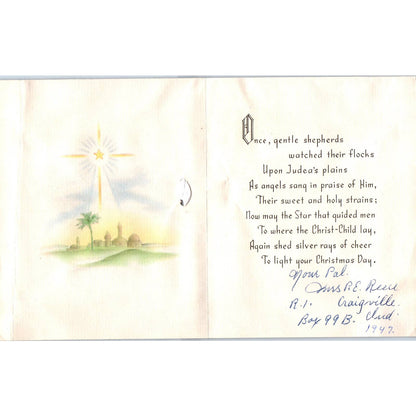 Once, gentle shepherds
watched their flocks
Upon Judea's plains
As angels sang in praise of Him,
Their sweet and holy strains;
Now may the Star that guided men
To where the Christ-Child lay,
Again shed silver rays of cheer
To light your Christmas Day.
Your Pal.
Mrs P.E.
R.1. Craigville
Box 99 B. Ind.
1947.